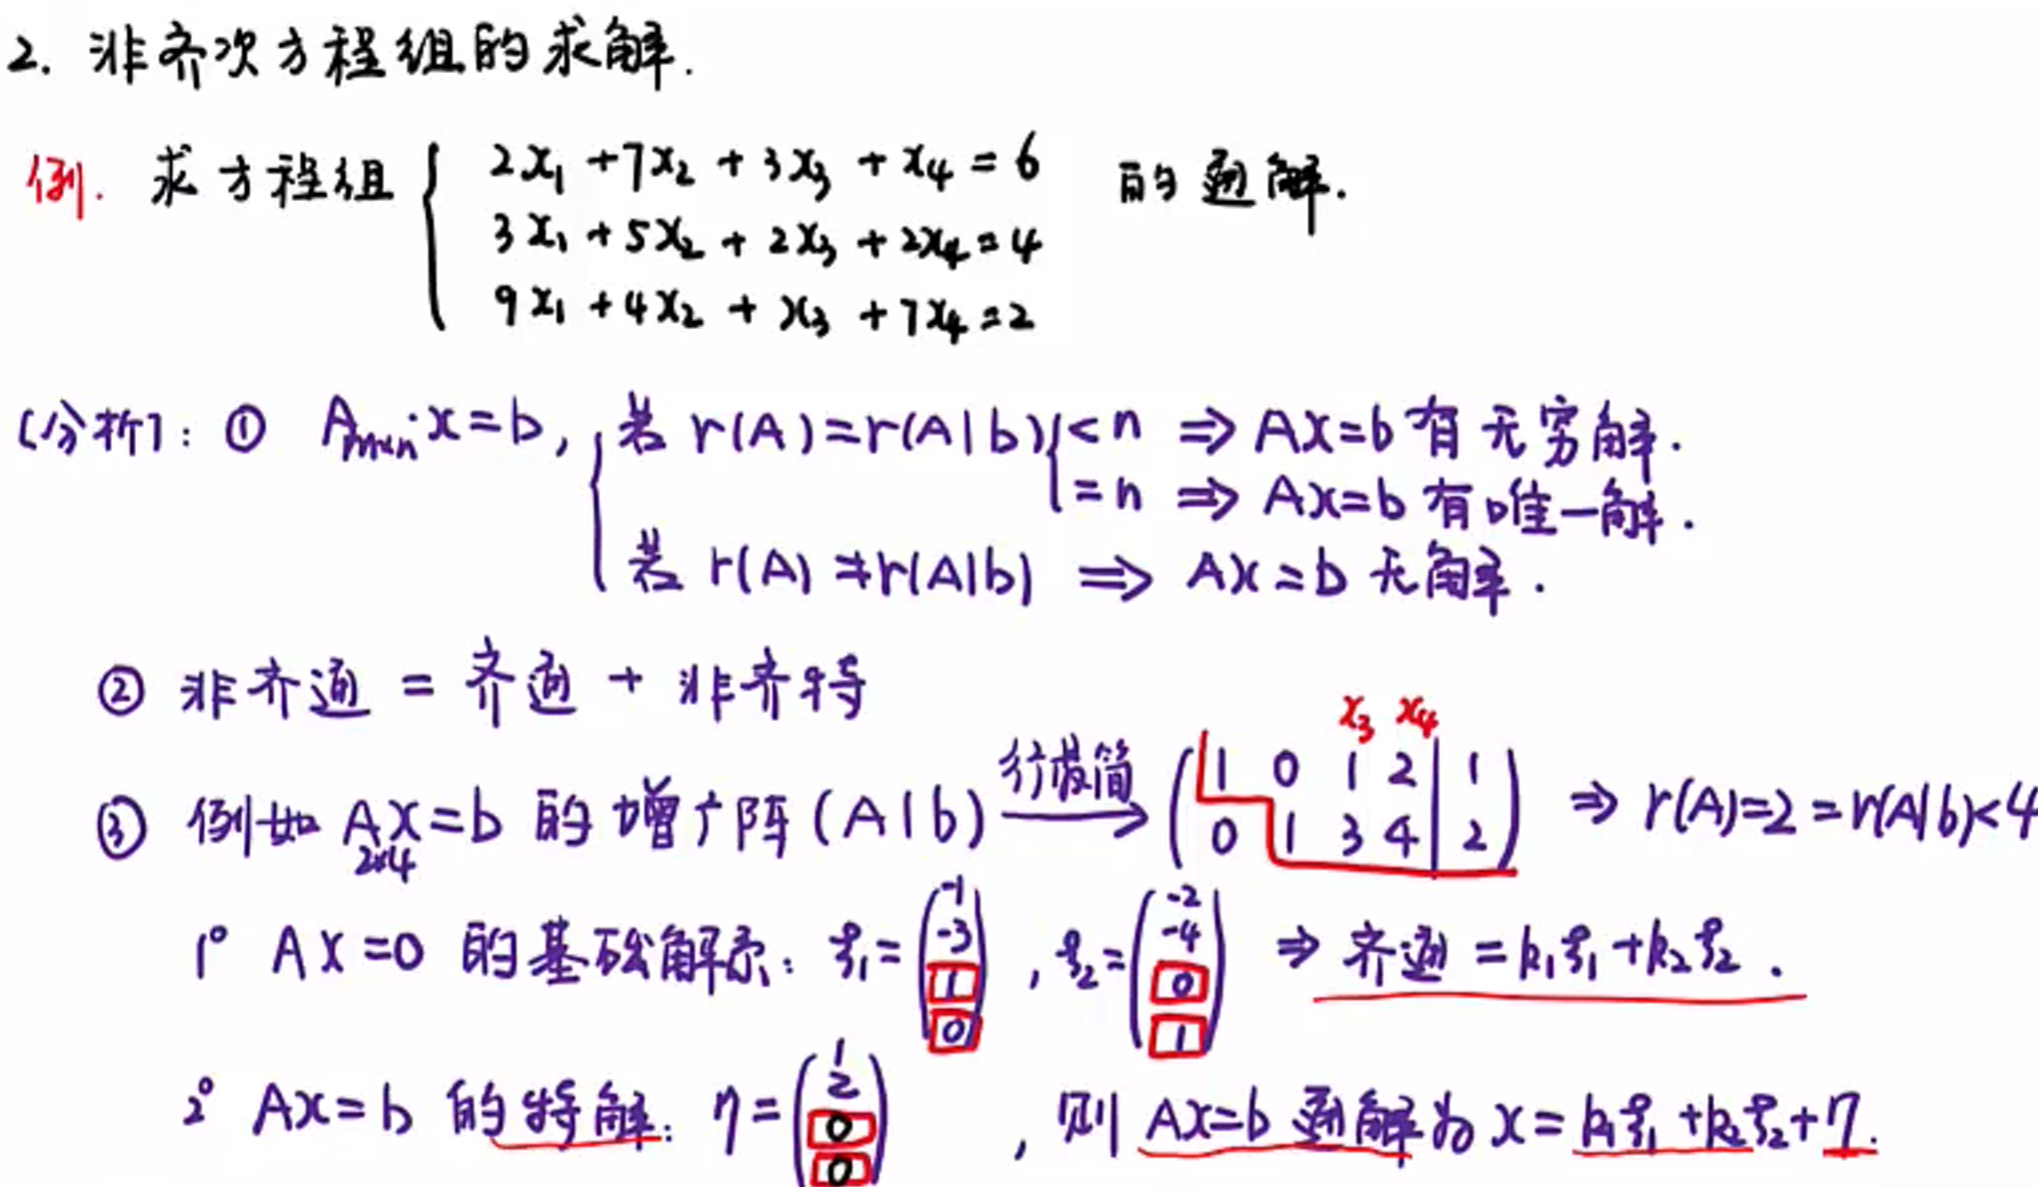 2. 非齐次方程组的求解.
例. 求方程组 { 2x₁+7x₂+3x₃+x₄=6 的通解.
3x₁+5x₂+2x₃+2x₄=4
9x₁+4x₂+x₃+7x₄=2
[分析]: ① Aₘₓₙ·x=b, { 若 r(A)=r(A|b) { <n ⇒ Ax=b 有无穷解.
=n ⇒ Ax=b 有唯一解.
若 r(A)≠r(A|b) ⇒ Ax=b 无解.
② 非齐通 = 齐通 + 非齐特
x₃ x₄
③ 例如 Ax=b 的增广阵 (A|b) 行最简→ ( 1 0 1 2 | 1 ) ⇒ r(A)=2=r(A|b)<4
2×4 ( 0 1 3 4 | 2 )
1° Ax=0 的基础解系: ξ₁=(-1 -3 1 0), ξ₂=(-2 -4 0 1) ⇒ 齐通 = k₁ξ₁+k₂ξ₂.
2° Ax=b 的特解: η=(1 2 0 0), 则 Ax=b 通解为 x=k₁ξ₁+k₂ξ₂+η.